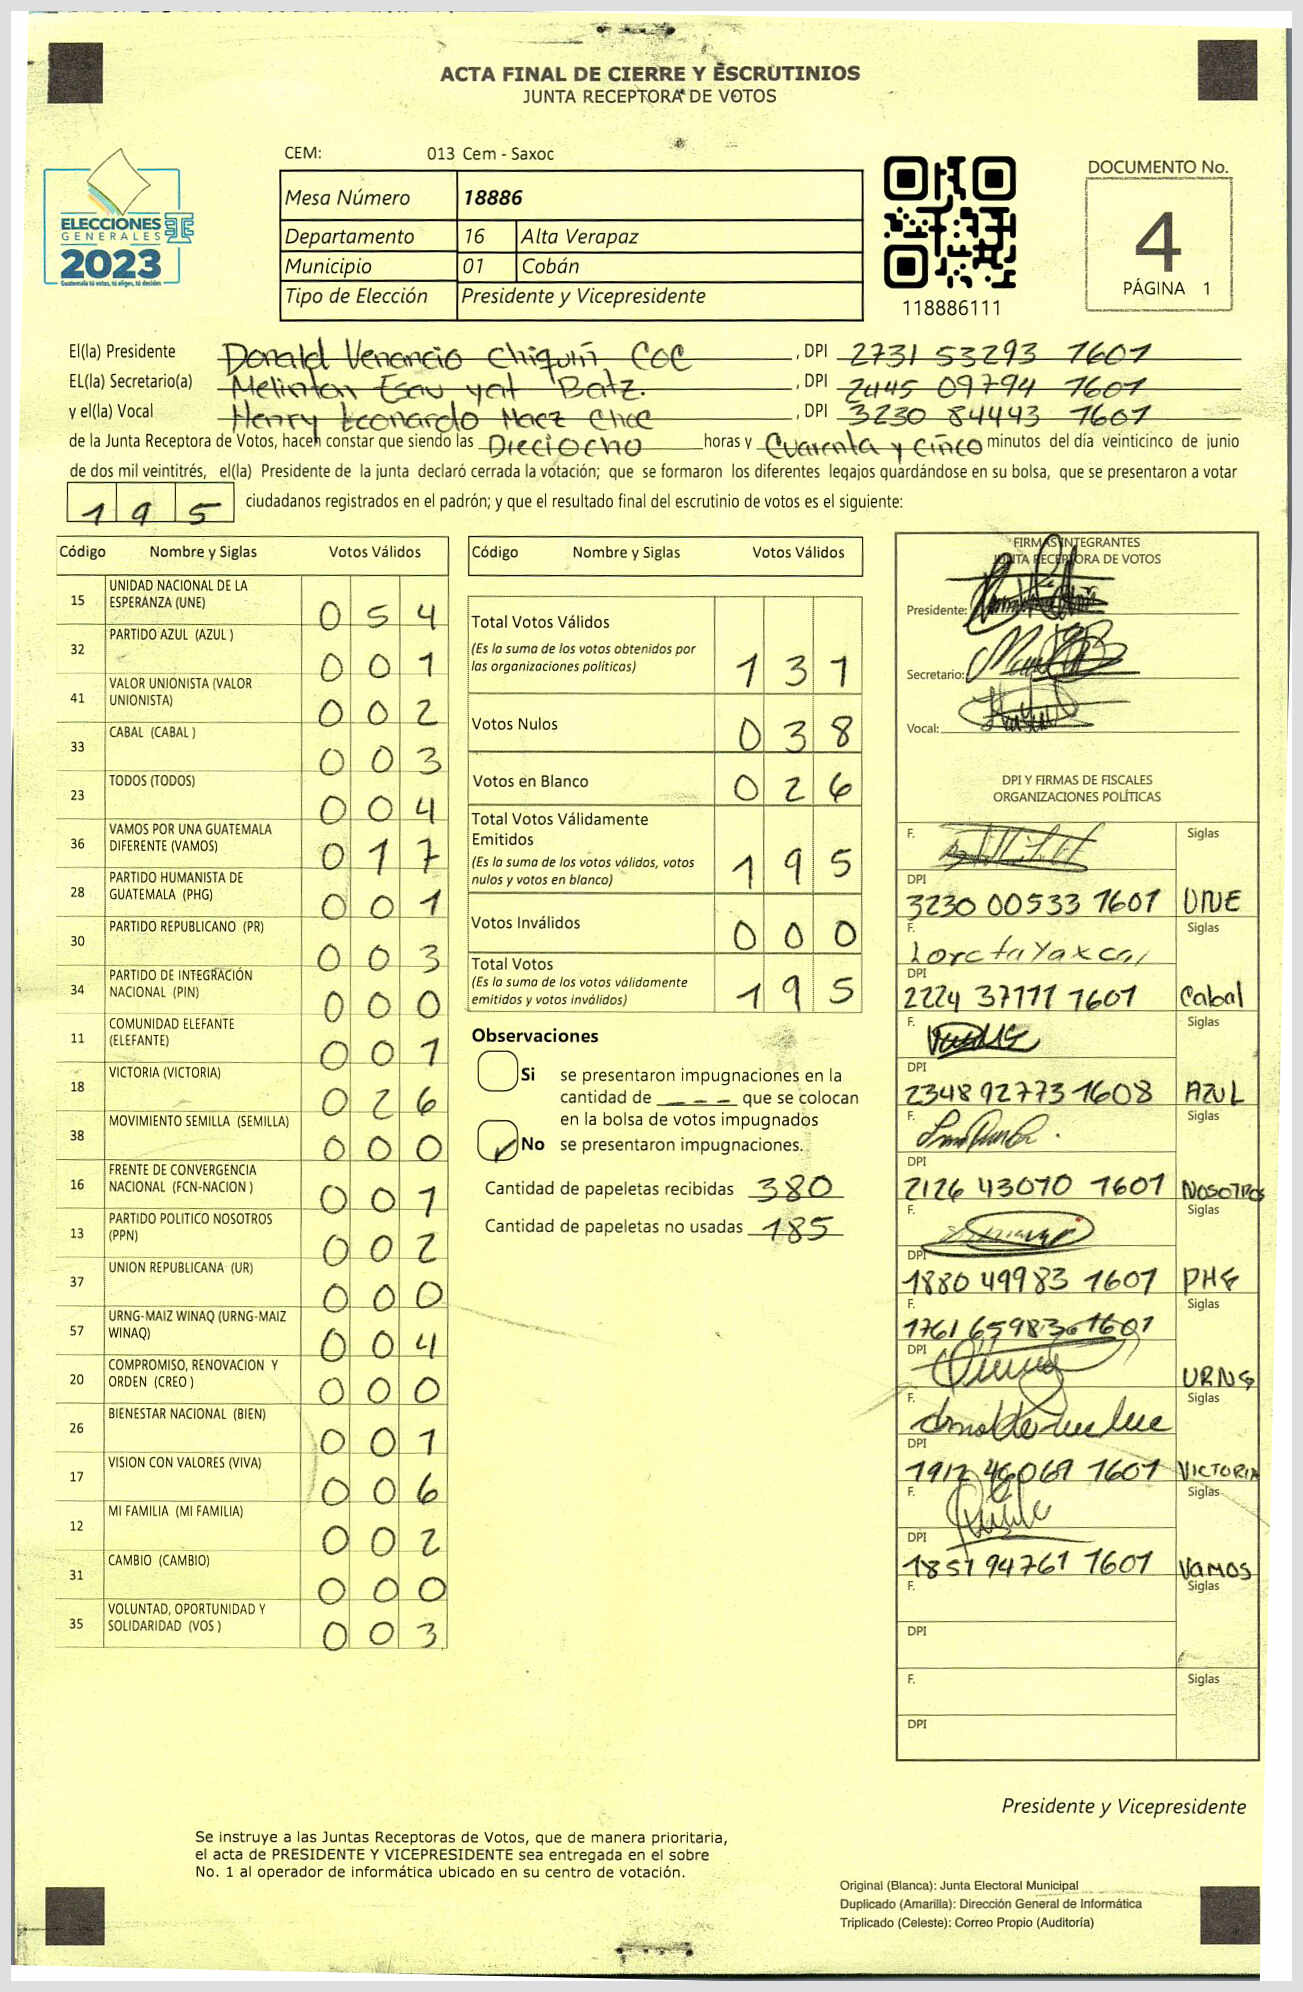 ACTA FINAL DE CIERRE Y ESCRUTINIOS
JUNTA RECEPTORA DE VOTOS
CEM: 013 Cem - Saxoc
ELECCIONES
GENERALES
2023
Guatemala tú votas, tú eliges, tú decides
Mesa Número 18886
Departamento 16 Alta Verapaz
Municipio 01 Cobán
Tipo de Elección Presidente y Vicepresidente
118886111
DOCUMENTO No.
4
PÁGINA 1
El(la) Presidente Donald Venancio Chiquin COC , DPI 2731 53293 1601
EL(la) Secretario(a) Melinton Esau yat Batz. , DPI 2445 09794 1601
y el(la) Vocal Henry Leonardo Maez Choc , DPI 3230 84443 1601
de la Junta Receptora de Votos, hacen constar que siendo las Dieciocho horas y Cuarenta y Cinco minutos del día veinticinco de junio
de dos mil veintitrés, el(la) Presidente de la junta declaró cerrada la votación; que se formaron los diferentes legajos guardándose en su bolsa, que se presentaron a votar
195 ciudadanos registrados en el padrón; y que el resultado final del escrutinio de votos es el siguiente:
Código Nombre y Siglas Votos Válidos
15 UNIDAD NACIONAL DE LA ESPERANZA (UNE) 054
32 PARTIDO AZUL (AZUL ) 001
41 VALOR UNIONISTA (VALOR UNIONISTA) 002
33 CABAL (CABAL ) 003
23 TODOS (TODOS) 004
36 VAMOS POR UNA GUATEMALA DIFERENTE (VAMOS) 017
28 PARTIDO HUMANISTA DE GUATEMALA (PHG) 001
30 PARTIDO REPUBLICANO (PR) 003
34 PARTIDO DE INTEGRACIÓN NACIONAL (PIN) 000
11 COMUNIDAD ELEFANTE (ELEFANTE) 001
18 VICTORIA (VICTORIA) 026
38 MOVIMIENTO SEMILLA (SEMILLA) 000
16 FRENTE DE CONVERGENCIA NACIONAL (FCN-NACION ) 001
13 PARTIDO POLITICO NOSOTROS (PPN) 002
37 UNION REPUBLICANA (UR) 000
57 URNG-MAIZ WINAQ (URNG-MAIZ WINAQ) 004
20 COMPROMISO, RENOVACION Y ORDEN (CREO ) 000
26 BIENESTAR NACIONAL (BIEN) 001
17 VISION CON VALORES (VIVA) 006
12 MI FAMILIA (MI FAMILIA) 002
31 CAMBIO (CAMBIO) 000
35 VOLUNTAD, OPORTUNIDAD Y SOLIDARIDAD (VOS ) 003
Código Nombre y Siglas Votos Válidos
Total Votos Válidos 131
(Es la suma de los votos obtenidos por
las organizaciones políticas)
Votos Nulos 038
Votos en Blanco 026
Total Votos Válidamente
Emitidos 195
(Es la suma de los votos válidos, votos
nulos y votos en blanco)
Votos Inválidos 000
Total Votos 195
(Es la suma de los votos válidamente
emitidos y votos inválidos)
Observaciones
Si se presentaron impugnaciones en la
cantidad de _ _ _ que se colocan
en la bolsa de votos impugnados
No se presentaron impugnaciones.
Cantidad de papeletas recibidas 380
Cantidad de papeletas no usadas 185
FIRMAS INTEGRANTES
JUNTA RECEPTORA DE VOTOS
Presidente:
Secretario:
Vocal:
DPI Y FIRMAS DE FISCALES
ORGANIZACIONES POLÍTICAS
F. Siglas
DPI
3230 00533 1601 UNE
F. Siglas
DPI
2224 37111 1601 Cabal
F. Siglas
DPI
2348 92773 1608 AZUL
F. Siglas
DPI
2126 43070 1601 NOSOTROS
F. Siglas
DPI
1880 49983 1601 PHG
F. Siglas
1761 65983 1601
DPI
URNG
F. Siglas
DPI
1912 46069 1601 VICTORIA
F. Siglas
DPI
1851 94761 1601 VAMOS
F. Siglas
DPI
F. Siglas
DPI
Presidente y Vicepresidente
Se instruye a las Juntas Receptoras de Votos, que de manera prioritaria,
el acta de PRESIDENTE Y VICEPRESIDENTE sea entregada en el sobre
No. 1 al operador de informática ubicado en su centro de votación.
Original (Blanca): Junta Electoral Municipal
Duplicado (Amarilla): Dirección General de Informática
Triplicado (Celeste): Correo Propio (Auditoría)